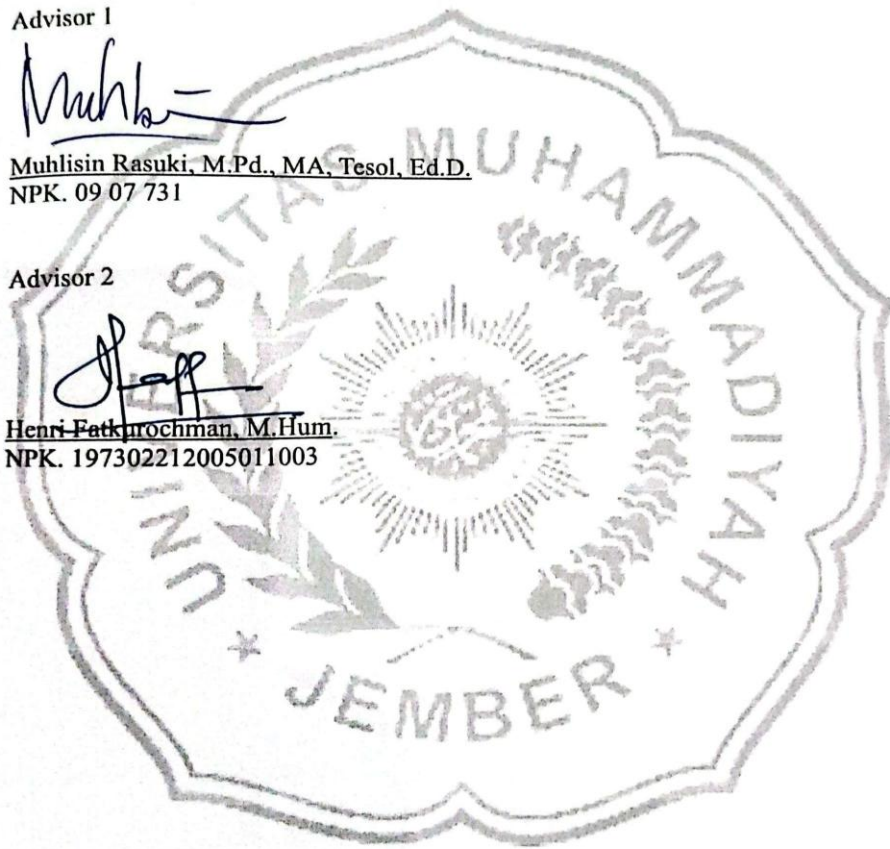 Advisor 1
Muhlisin Rasuki, M.Pd., MA, Tesol, Ed.D.
NPK. 09 07 731
Advisor 2
Henri Fatkurochman, M.Hum.
NPK. 197302212005011003
UNIVERSITAS MUHAMMADIYAH
* JEMBER *